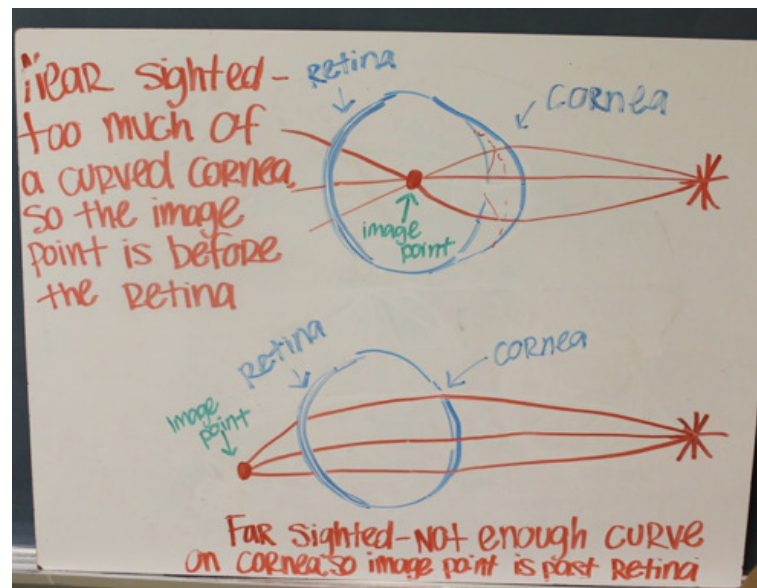 Near sighted-
too much of
a curved cornea,
so the image
point is before
the retina
Retina
Cornea
image
point
Retina
Cornea
Image
point
Far sighted-Not enough curve
on cornea, so image point is past Retina